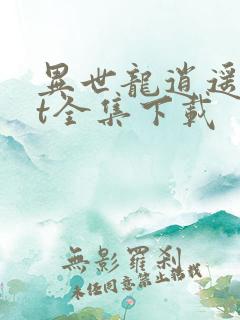 異世龍逍遥
t全集下載
無影羅刹
未經同意禁止轉載